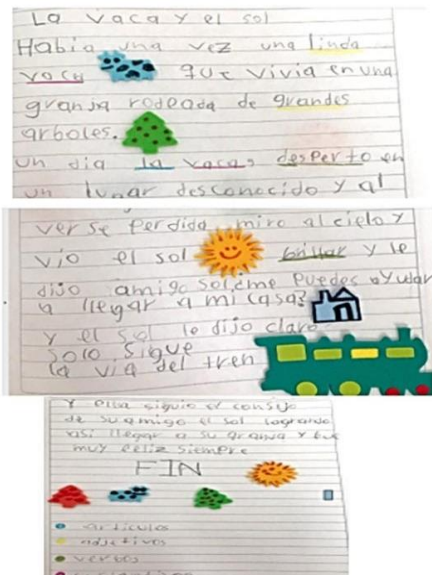 La vaca y el sol
Había una vez una linda
vaca que vivia en una
granja rodeada de grandes
arboles.
un dia la vaca, desperto en
un lugar desconocido y al
verse perdida miro al cielo y
vio el sol brillar y le
dijo amigo sol ¿me puedes ayudar
a llegar a mi casa?
y el sol le dijo claro
solo sigue
la via del tren
y ella siguio el consejo
de su amigo el sol logrando
asi llegar a su granja y fue
muy feliz siempre
FIN
articulos
adjetivos
verbos